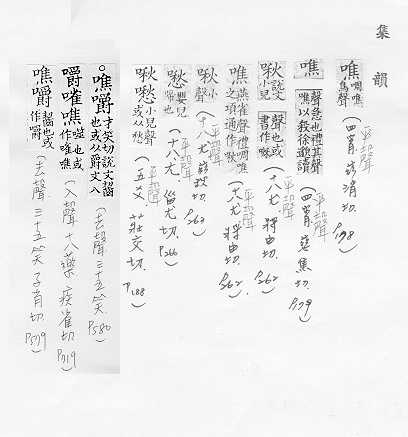 集韻
噍 啁噍鳥聲 (平聲 四宵 茲消切. P178)
噍 聲急也禮其聲噍以殺徐邈讀 (平聲 四宵 茲焦切. P179)
啾 說文小兒聲也或書作噍 (平聲 十八尤 將由切. P262)
噍 燕雀聲禮啁噍之頃通作啾 (平聲 十八尤 將由切. P262)
啾 小聲 (平聲 十八尤 切. P263)
愁 嬰兒啼也 (平聲 十八尤 甾尤切. P266)
啾愁 小兒聲或从愁 (平聲 五爻 莊交切. P188)
○噍嚼 才笑切說文齧也或从爵文八 (去聲 三十五笑 P580)
嚼嗺噍 噬也或作嗺噍 (入聲 十八藥 疾雀切 P719)
噍嚼 齧也或作嚼 (去聲 三十五笑 子肖切. P579)